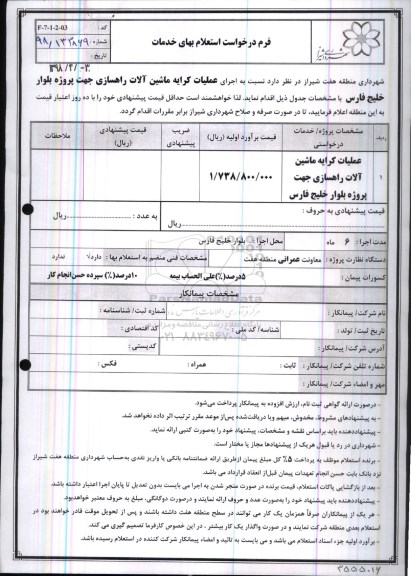 کد : F-7-1-2-03
شماره : ۹۸/۱۳۸۶۹
تاریخ :
۱۳۹۸/۲/۰۳
فرم درخواست استعلام بهای خدمات
شهرداری منطقه هفت شیراز در نظر دارد نسبت به اجرای عملیات کرایه ماشین آلات راهسازی جهت پروژه بلوار
خلیج فارس با مشخصات جدول ذیل اقدام نماید. لذا خواهشمند است حداقل قیمت پیشنهادی خود را با ده روز اعتبار قیمت
به این منطقه اعلام فرمایید، تا در صورت صرفه و صلاح شهرداری شیراز برابر مقررات اقدام گردد.
ردیف مشخصات پروژه/ خدمات درخواستی قیمت برآورد اولیه (ریال) ضریب پیشنهادی قیمت پیشنهادی (ریال) ملاحظات
۱ عملیات کرایه ماشین
آلات راهسازی جهت ۱/۷۳۸/۸۰۰/۰۰۰
پروژه بلوار خلیج فارس
قیمت پیشنهادی به حروف :
ریال به عدد : ریال
مدت اجرا : ۶ ماه محل اجرا : بلوار خلیج فارس
دستگاه نظارت پروژه : معاونت عمرانی منطقه هفت مشخصات فنی منضم به استعلام بها : دارد ندارد
کسورات پیمان : ۵درصد(%)علی الحساب بیمه ۱۰درصد(%) سپرده حسن انجام کار
مشخصات پیمانکار
نام شرکت/ پیمانکار : شماره ثبت/ شناسنامه :
تاریخ ثبت / تولد : شناسه/ کد ملی : کد اقتصادی :
آدرس شرکت/ پیمانکار : کدپستی :
شماره تلفن شرکت/ پیمانکار : ثابت : همراه : فکس :
مهر و امضاء شرکت/ پیمانکار :
- درصورت ارائه گواهی ثبت نام، ارزش افزوده به پیمانکار پرداخت می‌شود.
- به پیشنهادهای مشروط، مخدوش، مبهم ویا دریافت‌شده پس‌از موعد مقرر ترتیب اثر داده نخواهد شد.
- پیشنهاددهنده باید براساس نقشه و مشخصات، پیشنهاد خود را به‌صورت کتبی ارائه نماید.
- شهرداری در رد یا قبول هریک از پیشنهادها مجاز یا مختار است.
- برنده استعلام موظف به پرداخت ۵٪ کل مبلغ پیمان ازطریق ارائه ضمانتنامه بانکی یا واریز نقدی به‌حساب شهرداری منطقه هفت شیراز
نزد بانک بابت حسن انجام تعهدات پیمان قبل‌از انعقاد قرارداد می باشد.
- بعد از بازگشایی پاکات استعلام، قیمت برنده در صورت منجر شدن به اجرا می بایست بدون تعدیل تا پایان اجرا اعتبار داشته باشد.
- پیشنهاددهنده باید پیشنهاد خود را به‌صورت عدد و حروف ارائه نمایند و درصورت دوگانگی، مبلغ به حروف معتبر خواهدبود.
- هر یک از پیمانکاران صرفاً همزمان یک کار می توانند در سطح منطقه هفت داشته باشند و پس از تحویل موقت قادر خواهند بود در
استعلام بعدی منطقه شرکت نمایند و در صورت واگذار یک کار بیشتر . در این خصوص کارفرما تصمیم گیری می کند.
- برآورد اولیه جزء اسناد استعلام می باشد و می بایست به تائید و امضاء پیمانکار شرکت کننده در استعلام رسیده باشد.
۳۵۵۵۰۱۶
۰۲۱-۸۸۳۴۹۶۷۰-۵